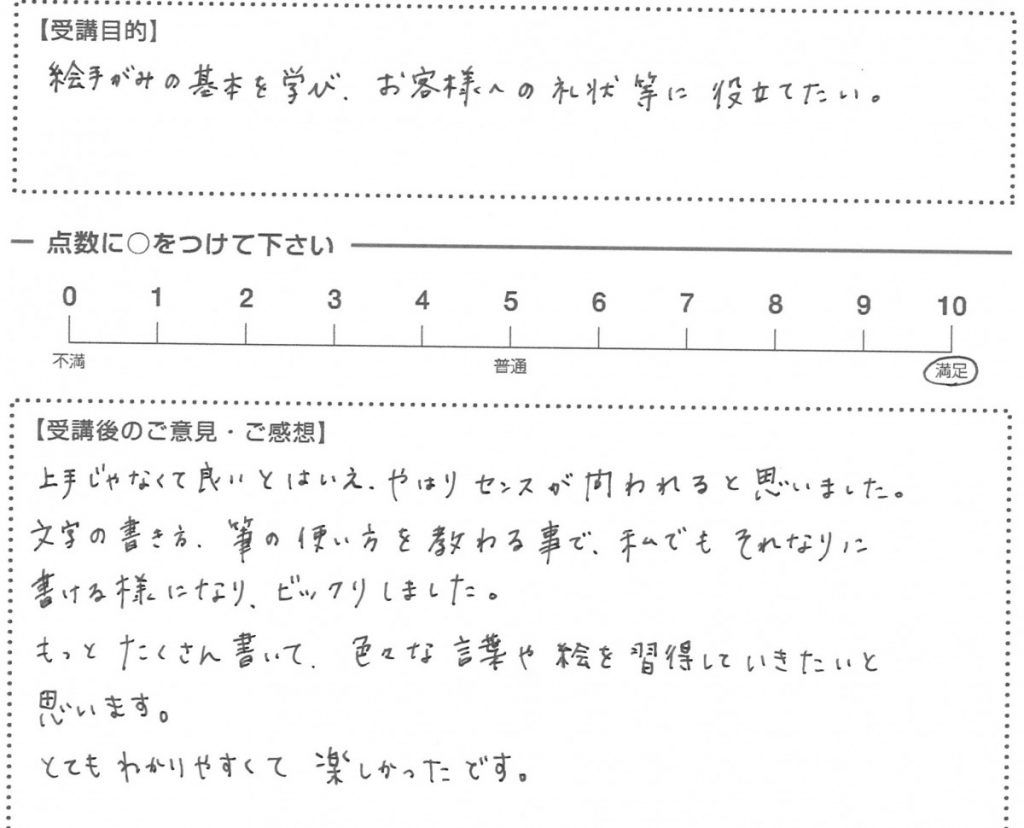 【受講目的】
絵手がみの基本を学び、お客様への礼状等に役立てたい。
点数に○をつけて下さい
0 1 2 3 4 5 6 7 8 9 10
不満 普通 満足
【受講後のご意見・ご感想】
上手じゃなくて良いとはいえ、やはりセンスが問われると思いました。
文字の書き方、筆の使い方を教わる事で、私でもそれなりに
書ける様になり、ビックリしました。
もっとたくさん書いて、色々な言葉や絵を習得していきたいと
思います。
とてもわかりやすくて楽しかったです。